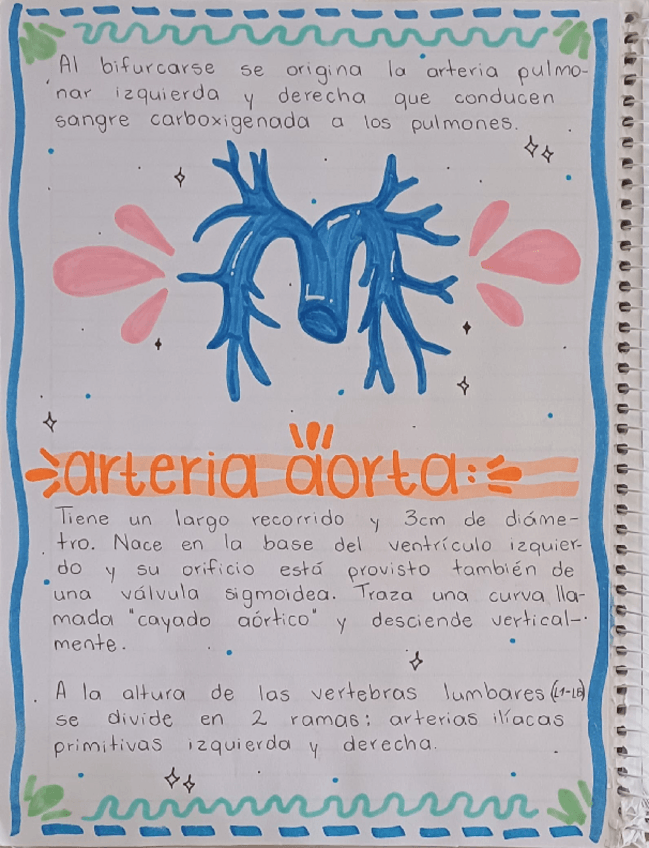 Al bifurcarse se origina la arteria pulmo-
nar izquierda y derecha que conducen
sangre carboxigenada a los pulmones.
arteria aorta:
Tiene un largo recorrido y 3cm de diáme-
tro. Nace en la base del ventrículo izquier-
do y su orificio está provisto también de
una válvula sigmoidea. Traza una curva lla-
mada "cayado aórtico" y desciende vertical-
mente.
A la altura de las vertebras lumbares (L1-L5)
se divide en 2 ramas: arterias ilíacas
primitivas izquierda y derecha.